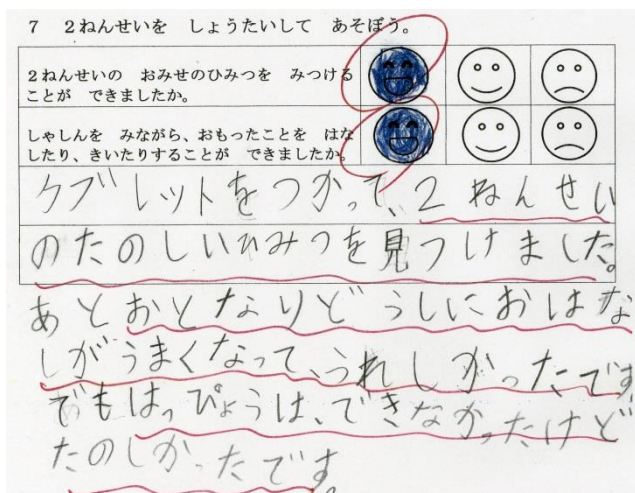 7 2ねんせいを しょうたいして あそぼう。
2ねんせいの おみせのひみつを みつける
ことが できましたか。
しゃしんを みながら、おもったことを はな
したり、きいたりすることが できましたか。
タブレットをつかって、2ねんせい
のたのしいひみつを見つけました。
あとおとなりどうしにおはな
しがうまくなって、うれしかったです
でもはっぴょうは、できなかったけど
たのしかったです。